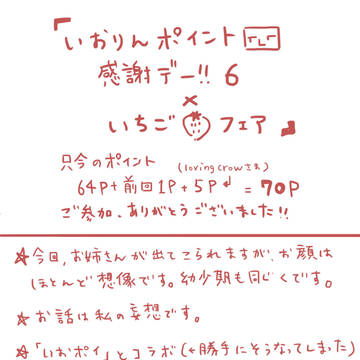 『いおりんポイント
感謝デー!! 6
×
いちご フェア』
只今のポイント
(lovingcrowさま)
64P+前回1P+5P = 70P
ご参加、ありがとうございました!!
★今回、お姉さんが出てこられますが、お顔は
ほとんど想像です。幼少期も同じくです。
★お話は私の妄想です。
★「いおポイ」とコラボ(←勝手にそうなってしまった)